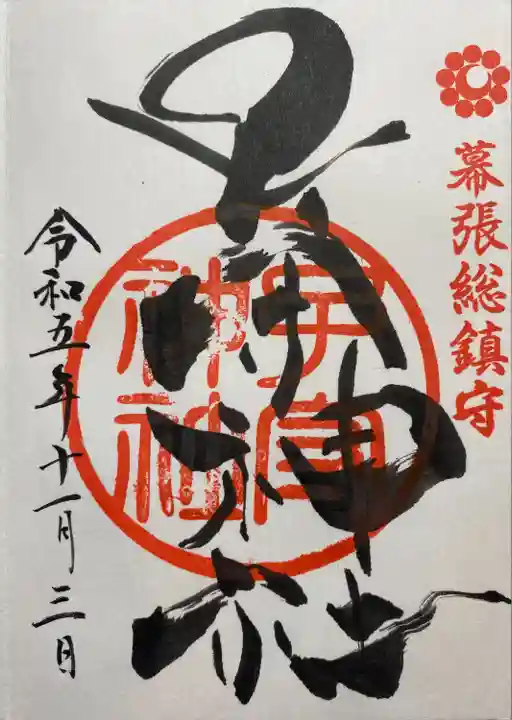 幕張総鎮守
神社
子守
神社
令和五年十一月三日